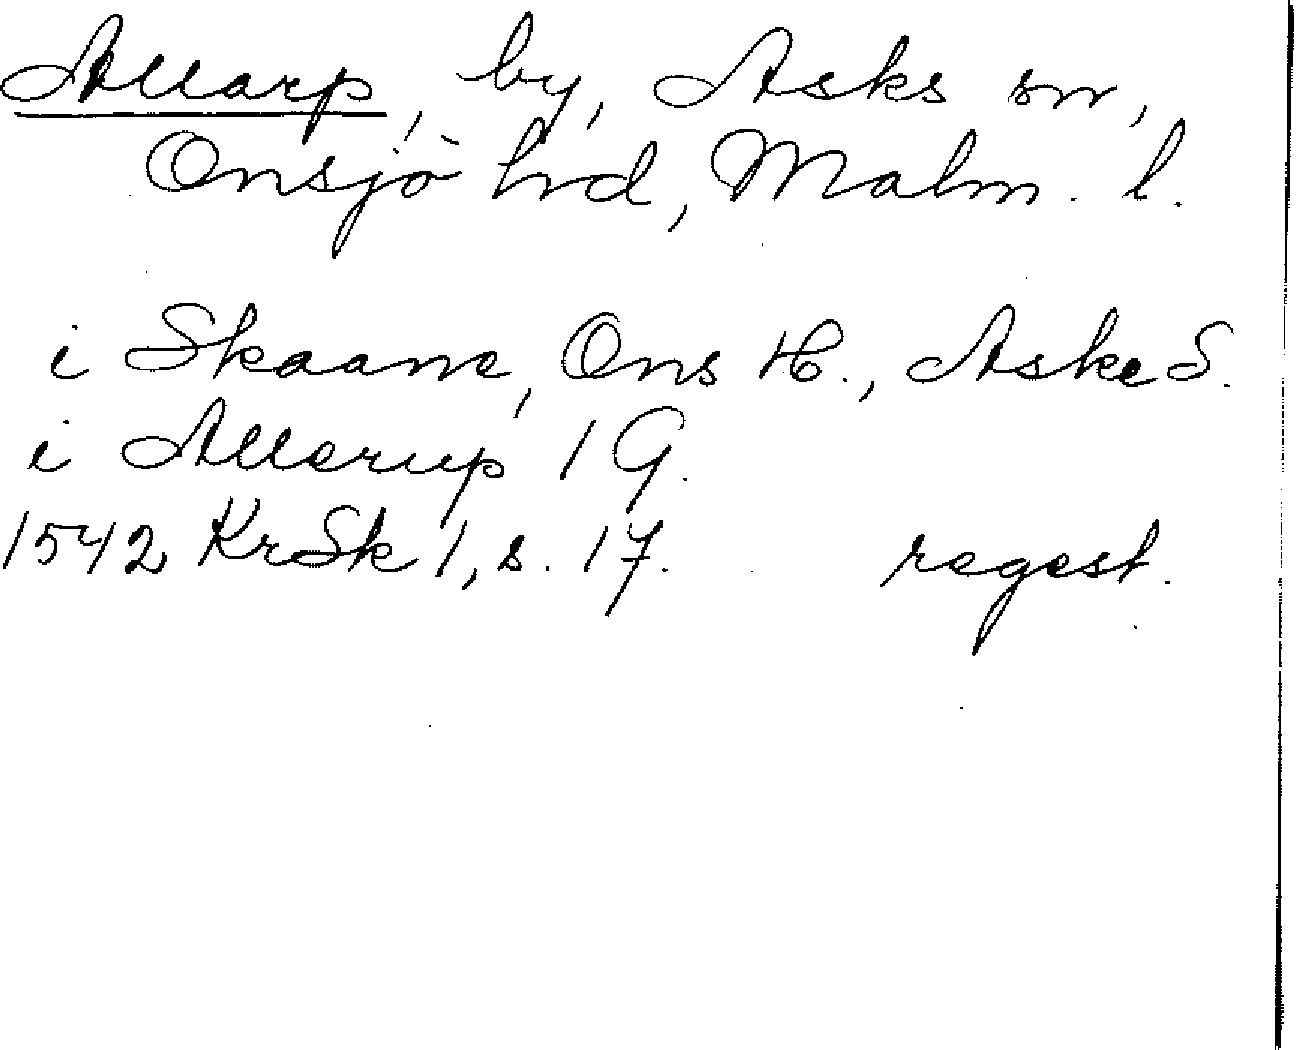 Allarp, by, Asks sn,
Onsjö hd, Malm. l.
i Skaane, Ons H., Aske S.
i Allerup 1 G.
1542 KrSk 1, s. 17. regest.